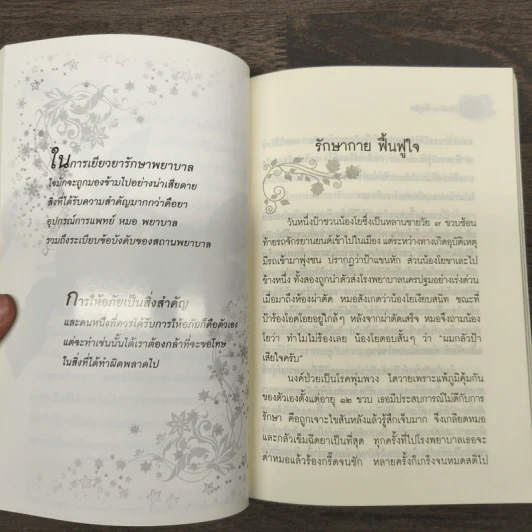 ในการเยียวยารักษาพยาบาล
ใจมักจะถูกมองข้ามไปอย่างน่าเสียดาย
สิ่งที่ได้รับความสำคัญมากกว่าคือยา
อุปกรณ์การแพทย์ หมอ พยาบาล
รวมถึงระเบียบข้อบังคับของสถานพยาบาล
การให้อภัยเป็นสิ่งสำคัญ
และคนหนึ่งที่ควรได้รับการให้อภัยก็คือตัวเอง
แต่จะทำเช่นนั้นได้เราต้องกล้าที่จะขอโทษ
ในสิ่งที่ได้ทำผิดพลาดไป
รักษากาย ฟื้นฟูใจ
วันหนึ่งป้าชวนน้องโยซึ่งเป็นหลานชายวัย ๙ ขวบซ้อน
ท้ายรถจักรยานยนต์เข้าไปในเมือง แต่ระหว่างทางเกิดอุบัติเหตุ
มีรถเข้ามาพุ่งชน ปรากฏว่าป้าแขนหัก ส่วนน้องโยขาเละไป
ข้างหนึ่ง ทั้งสองถูกนำตัวส่งโรงพยาบาลนครปฐมอย่างเร่งด่วน
เมื่อมาถึงห้องผ่าตัด หมอสังเกตว่าน้องโยเงียบสนิท ขณะที่
ป้าร้องโอดโอยอยู่ใกล้ๆ หลังจากผ่าตัดเสร็จ หมอจึงถามน้อง
โยว่า ทำไมไม่ร้องเลย น้องโยตอบสั้นๆ ว่า "ผมกลัวป้า
เสียใจครับ"
นงค์ป่วยเป็นโรคพุ่มพวง ไตวายเพราะแพ้ภูมิคุ้มกัน
ของตัวเองตั้งแต่อายุ ๑๒ ขวบ เธอมีประสบการณ์ไม่ดีกับการ
รักษา คือถูกเจาะไขสันหลังแล้วรู้สึกเจ็บมาก จึงเกลียดหมอ
และกลัวเข็มฉีดยาเป็นที่สุด ทุกครั้งที่ไปโรงพยาบาลเธอจะ
ด่าหมอแล้วร้องกรี๊ดจนชัก หลายครั้งก็เกร็งจนหมดสติไป